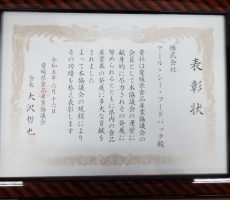 表彰状
株式会社
アール・シー・フードパック殿
貴社は愛媛県食品産業協議会の
会員として本協議会の運営に
献身的に尽力されその発展に
努められるとともに県内の食品
産業界の発展に多大な貢献を
されました
よって本協議会の規程により
その功績を称え表彰します
令和五年六月十六日
愛媛県食品産業協議会
会長 大沢哲也